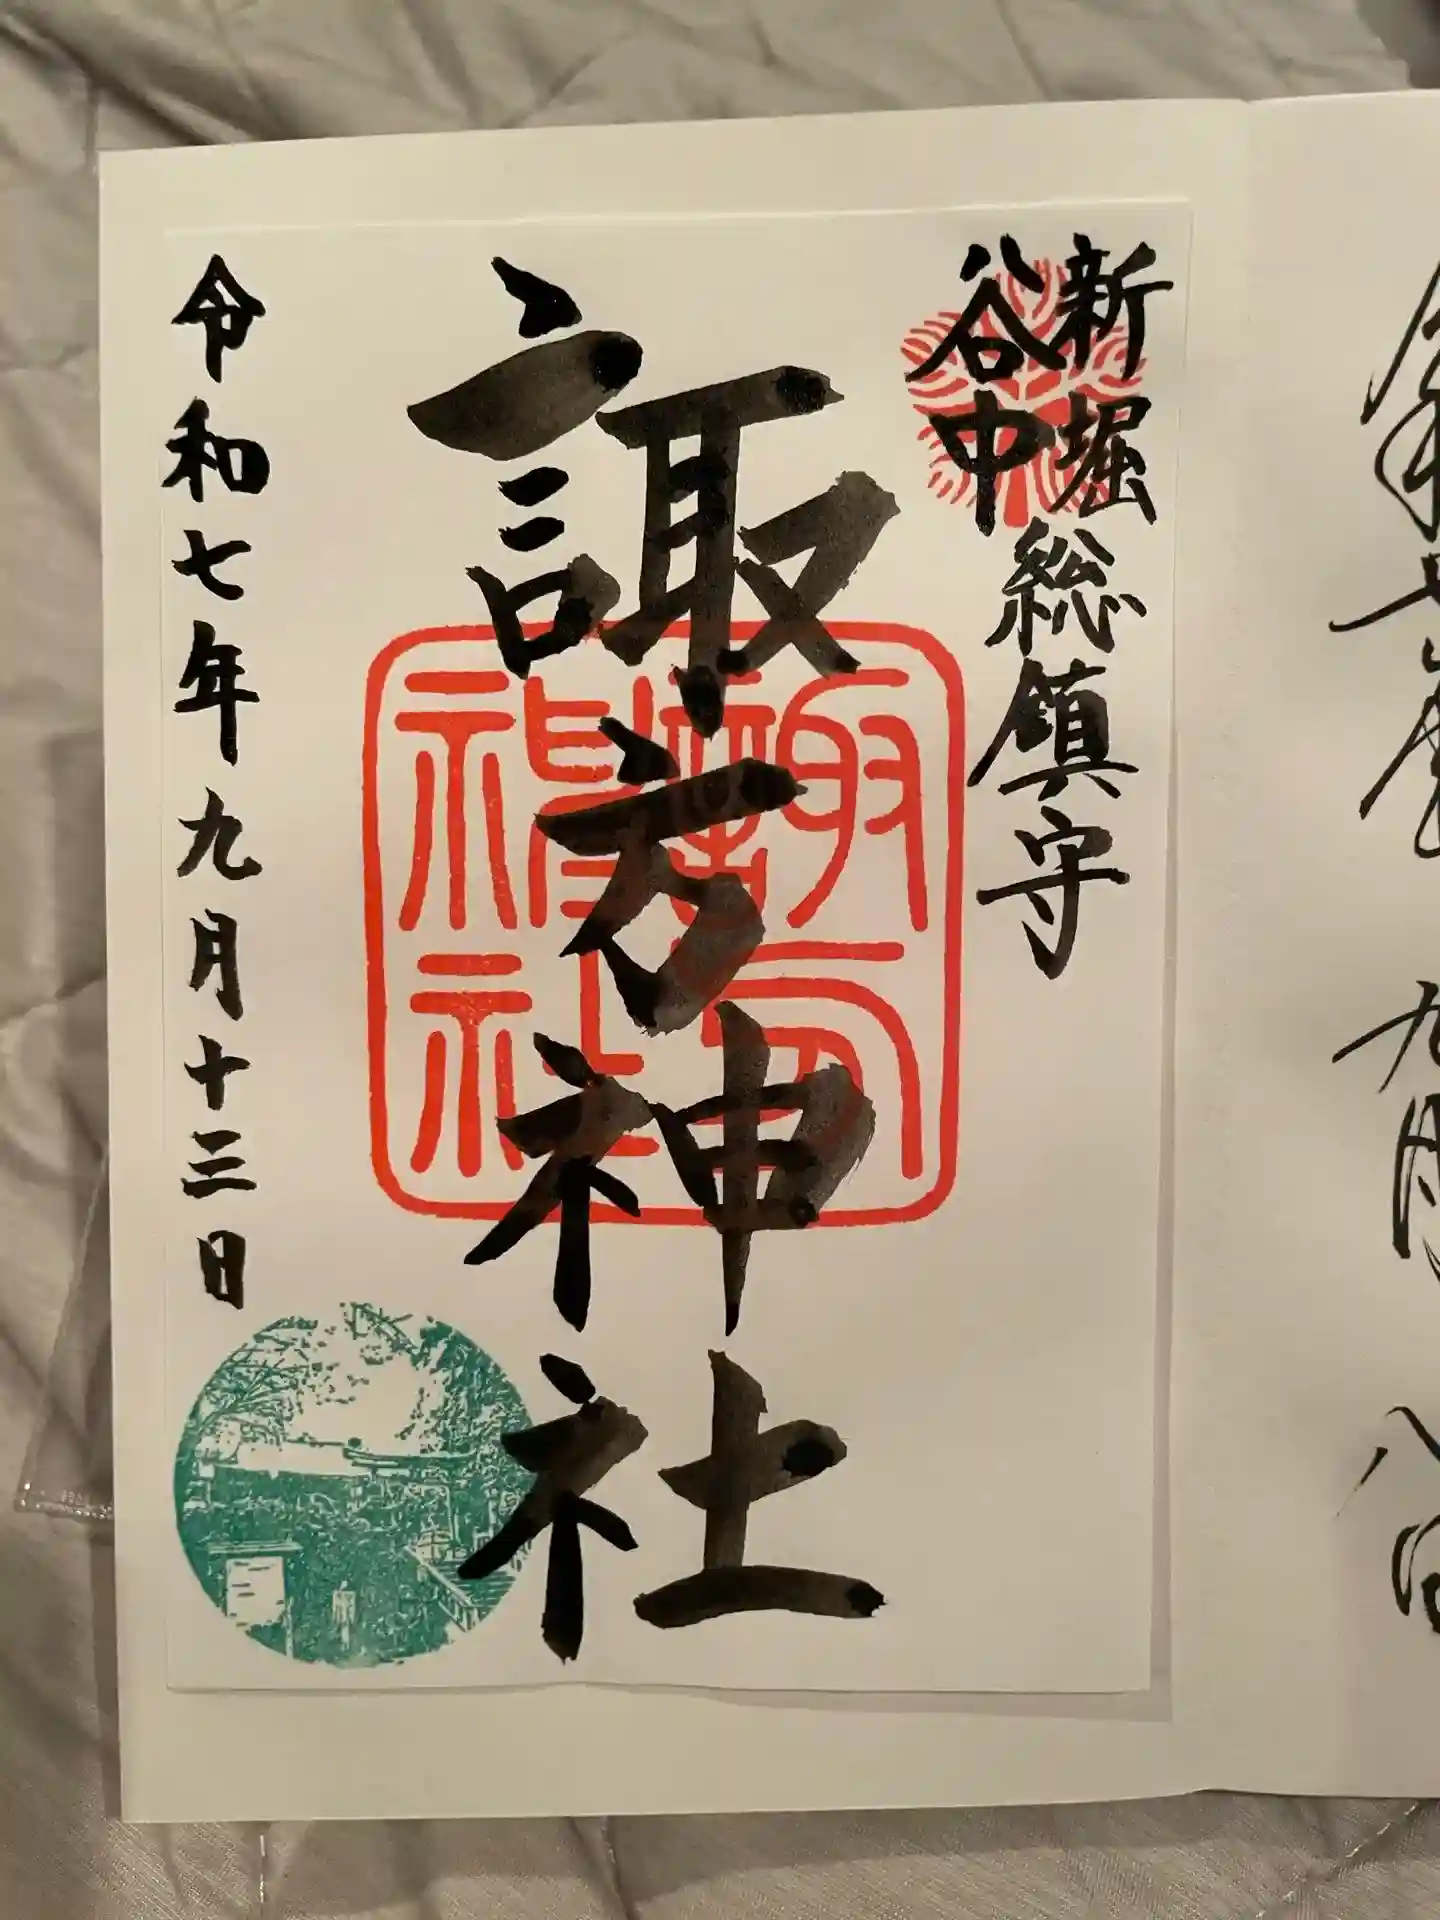 新堀
谷中
総鎮守
諏方神社
諏方
神社
令和七年九月十三日
九月